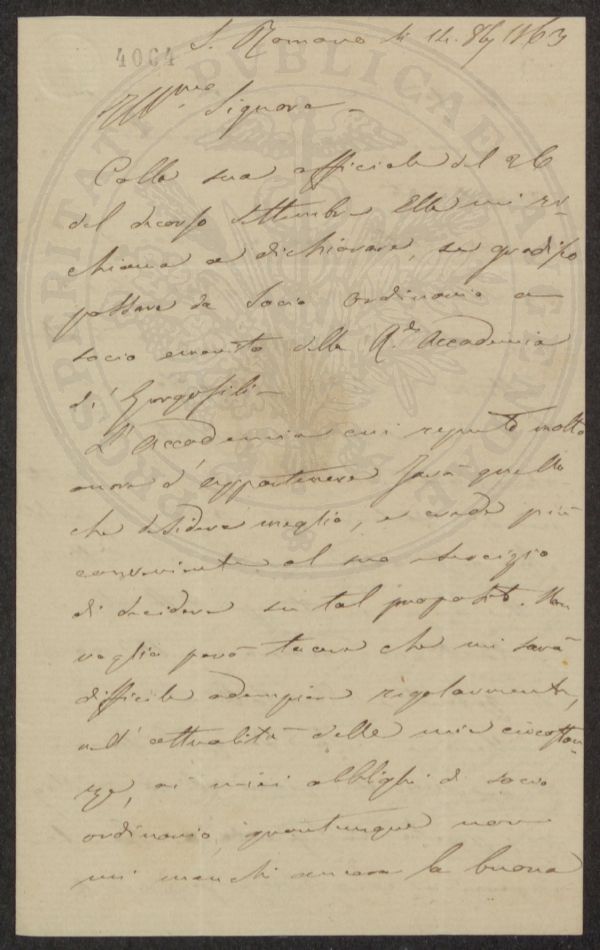 4064
S. Romano li 12. 8bre 1863
Ill.mo Signore
Colla sua officiale del 26
del decorso Settembre Ella mi ri-
chiama a dichiarare, se gradisco
passare da Socio ordinario a
socio emerito della R.le Accademia
de' Georgofili.
L'Accademia cui reputo molto
onore d'appartenere farà quello
che desidera meglio, e crede più
conveniente al suo servizio
di decidere su tal proposito. Non
voglio però tacere che mi sarà
difficile adempiere regolarmente,
nell'attualità delle mie circostan-
ze, ai miei obblighi di socio
ordinario, quantunque non
mi manchi ancora la buona
PROSPERITATI PUBLICAE AUGENDAE